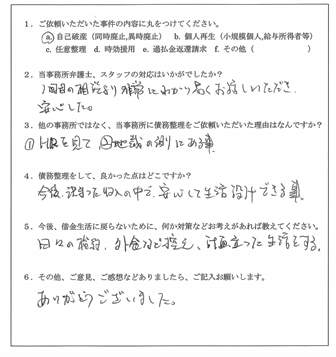 1．ご依頼いただいた事件の内容に丸をつけてください。
a. 自己破産（同時廃止,異時廃止） b. 個人再生（小規模個人,給与所得者等）
c. 任意整理 d. 時効援用 e. 過払金返還請求 f. その他（ ）
2．当事務所弁護士、スタッフの対応はいかがでしたか？
1回目の相談より非常にわかり易くお話しいただき、
安心した。
3．他の事務所ではなく、当事務所に債務整理をご依頼いただいた理由はなんですか？
① HPを見て ② 地裁の側にある事
4．債務整理をして、良かった点はどこですか？
今後、決まった収入の中で、安心して生活設計できる事。
5．今後、借金生活に戻らないために、何か対策などお考えがあれば教えてください。
日々の節約、外食など控え、計画立った生活をする。
6．その他、ご意見、ご感想などありましたら、ご記入お願いします。
ありがとうございました。